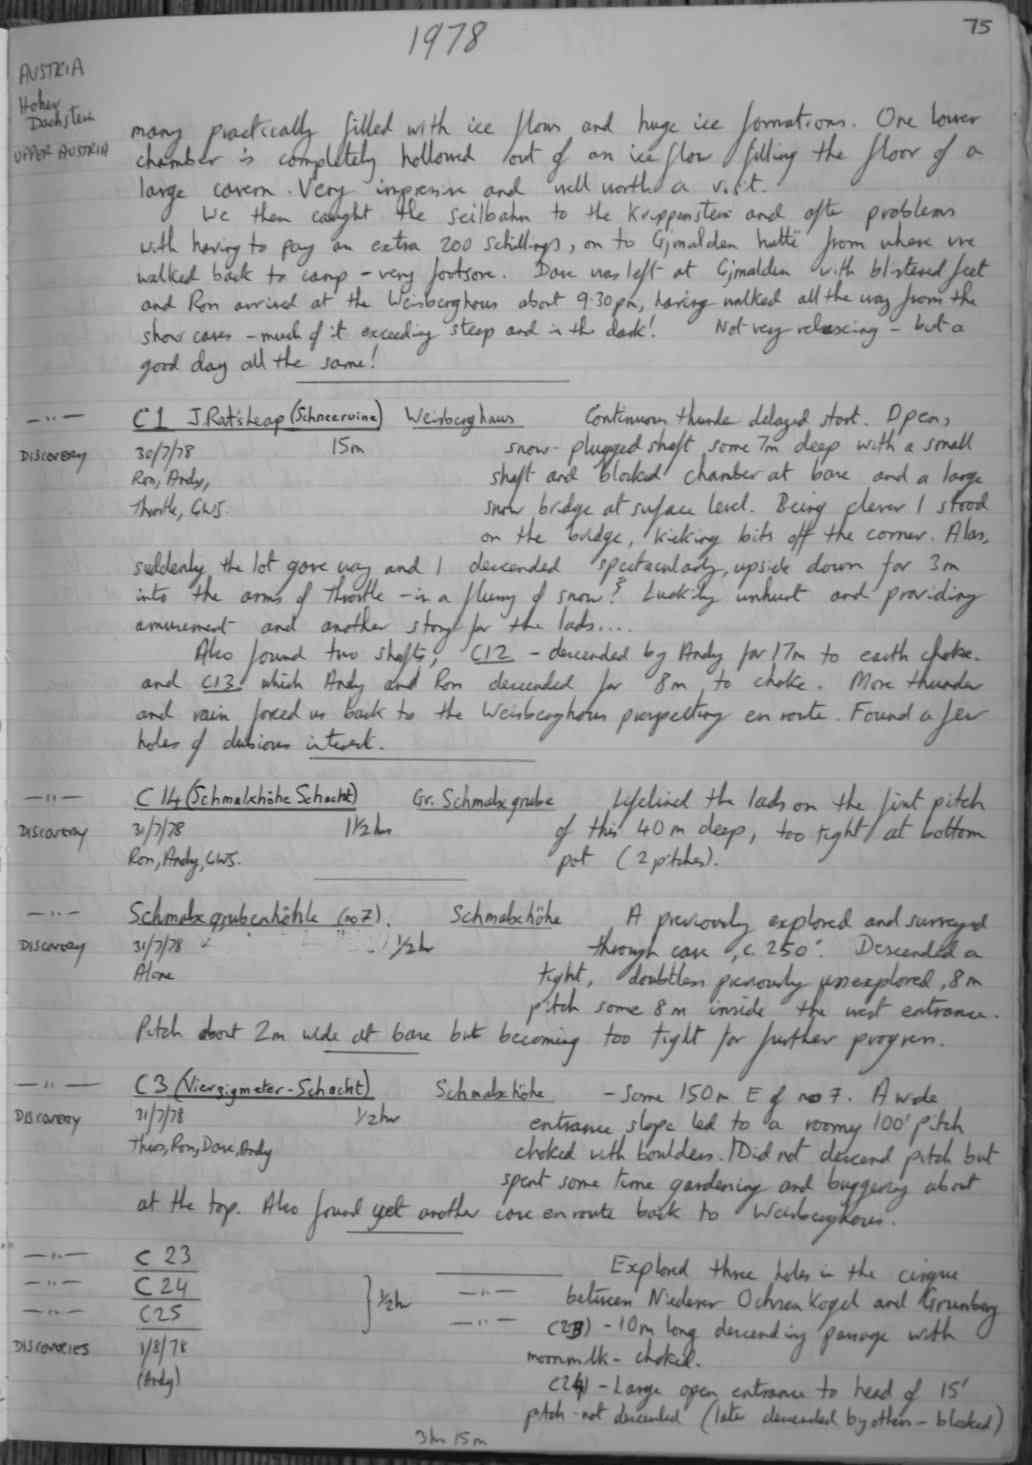 1978
75
AUSTRIA
Hoher
Dachstein
UPPER AUSTRIA
many practically filled with ice flows and huge ice formations. One lower
chamber is completely hollowed out of an ice flow filling the floor of a
large cavern. Very impressive and well worth a visit.
We then caught the seilbahn to the Krippenstein and after problems
with having to pay an extra 200 schillings, on to Gjmalden hutte from where we
walked back to camp - very footsore. Dave was left at Gjmalden with blistered feet
and Ron arrived at the Weisberghaus about 9.30pm, having walked all the way from the
show caves - much of it exceeding steep and in the dark! Not very relaxing - but a
good day all the same!
-"- C1 J.Rat'sheap (Schneeruine) Weisberghaus Continuous thunder delayed start. Open,
DISCOVERY 30/7/78 15m snow-plugged shaft some 7m deep with a small
Ron, Andy, shaft and blocked chamber at base and a large
Throttle, GWJ. snow bridge at surface level. Being clever I stood
on the bridge, kicking bits off the corner. Alas,
suddenly the lot gave way and I descended spectacularly, upside down for 3m
into the arms of Throttle - in a flurry of snow! Luckily unhurt and providing
amusement and another story for the lads....
Also found two shafts, C12 - descended by Andy for 17m to earth choke.
and C13 which Andy and Ron descended for 8m to choke. More thunder
and rain forced us back to the Weisberghaus prospecting en route. Found a few
holes of dubious interest.
-"- C14 (Schmalzhöhe Schacht) Gr. Schmalzgrube Lifelined the lads on the first pitch
DISCOVERY 31/7/78 1 1/2 hrs of this 40m deep, too tight at bottom
Ron, Andy, GWJ. pot (2 pitches).
-"- Schmalzgrubenhöhle (no7). Schmalzhöhe A previously explored and surveyed
DISCOVERY 31/7/78 1/2hr through cave, c.250'. Descended a
Alone tight, doubtless previously unexplored, 8m
pitch some 8m inside the west entrance.
Pitch about 2m wide at base but becoming too tight for further progress.
-"- C3 (Vierzigmeter-Schacht) Schmalzhöhe - Some 150m E of no 7. A wide
DISCOVERY 31/7/78 1/2hr entrance slope led to a roomy 100' pitch
Ron, Dave, Andy choked with boulders. Did not descend pitch but
spent some time gardening and buggering about
at the top. Also found yet another cave en route back to Weisberghaus.
-"- C 23 Explored three holes in the cirque
-"- C24 1/2hr -"- between Niederer Ochsen Kogel and Grunberg
-"- C25 -"- (C23) - 10m long descending passage with
DISCOVERIES 1/8/78 moonmilk - choked.
(Andy) C24) - Large open entrance to head of 15'
pitch - not descended (later descended by others - blocked)
3hrs 15m